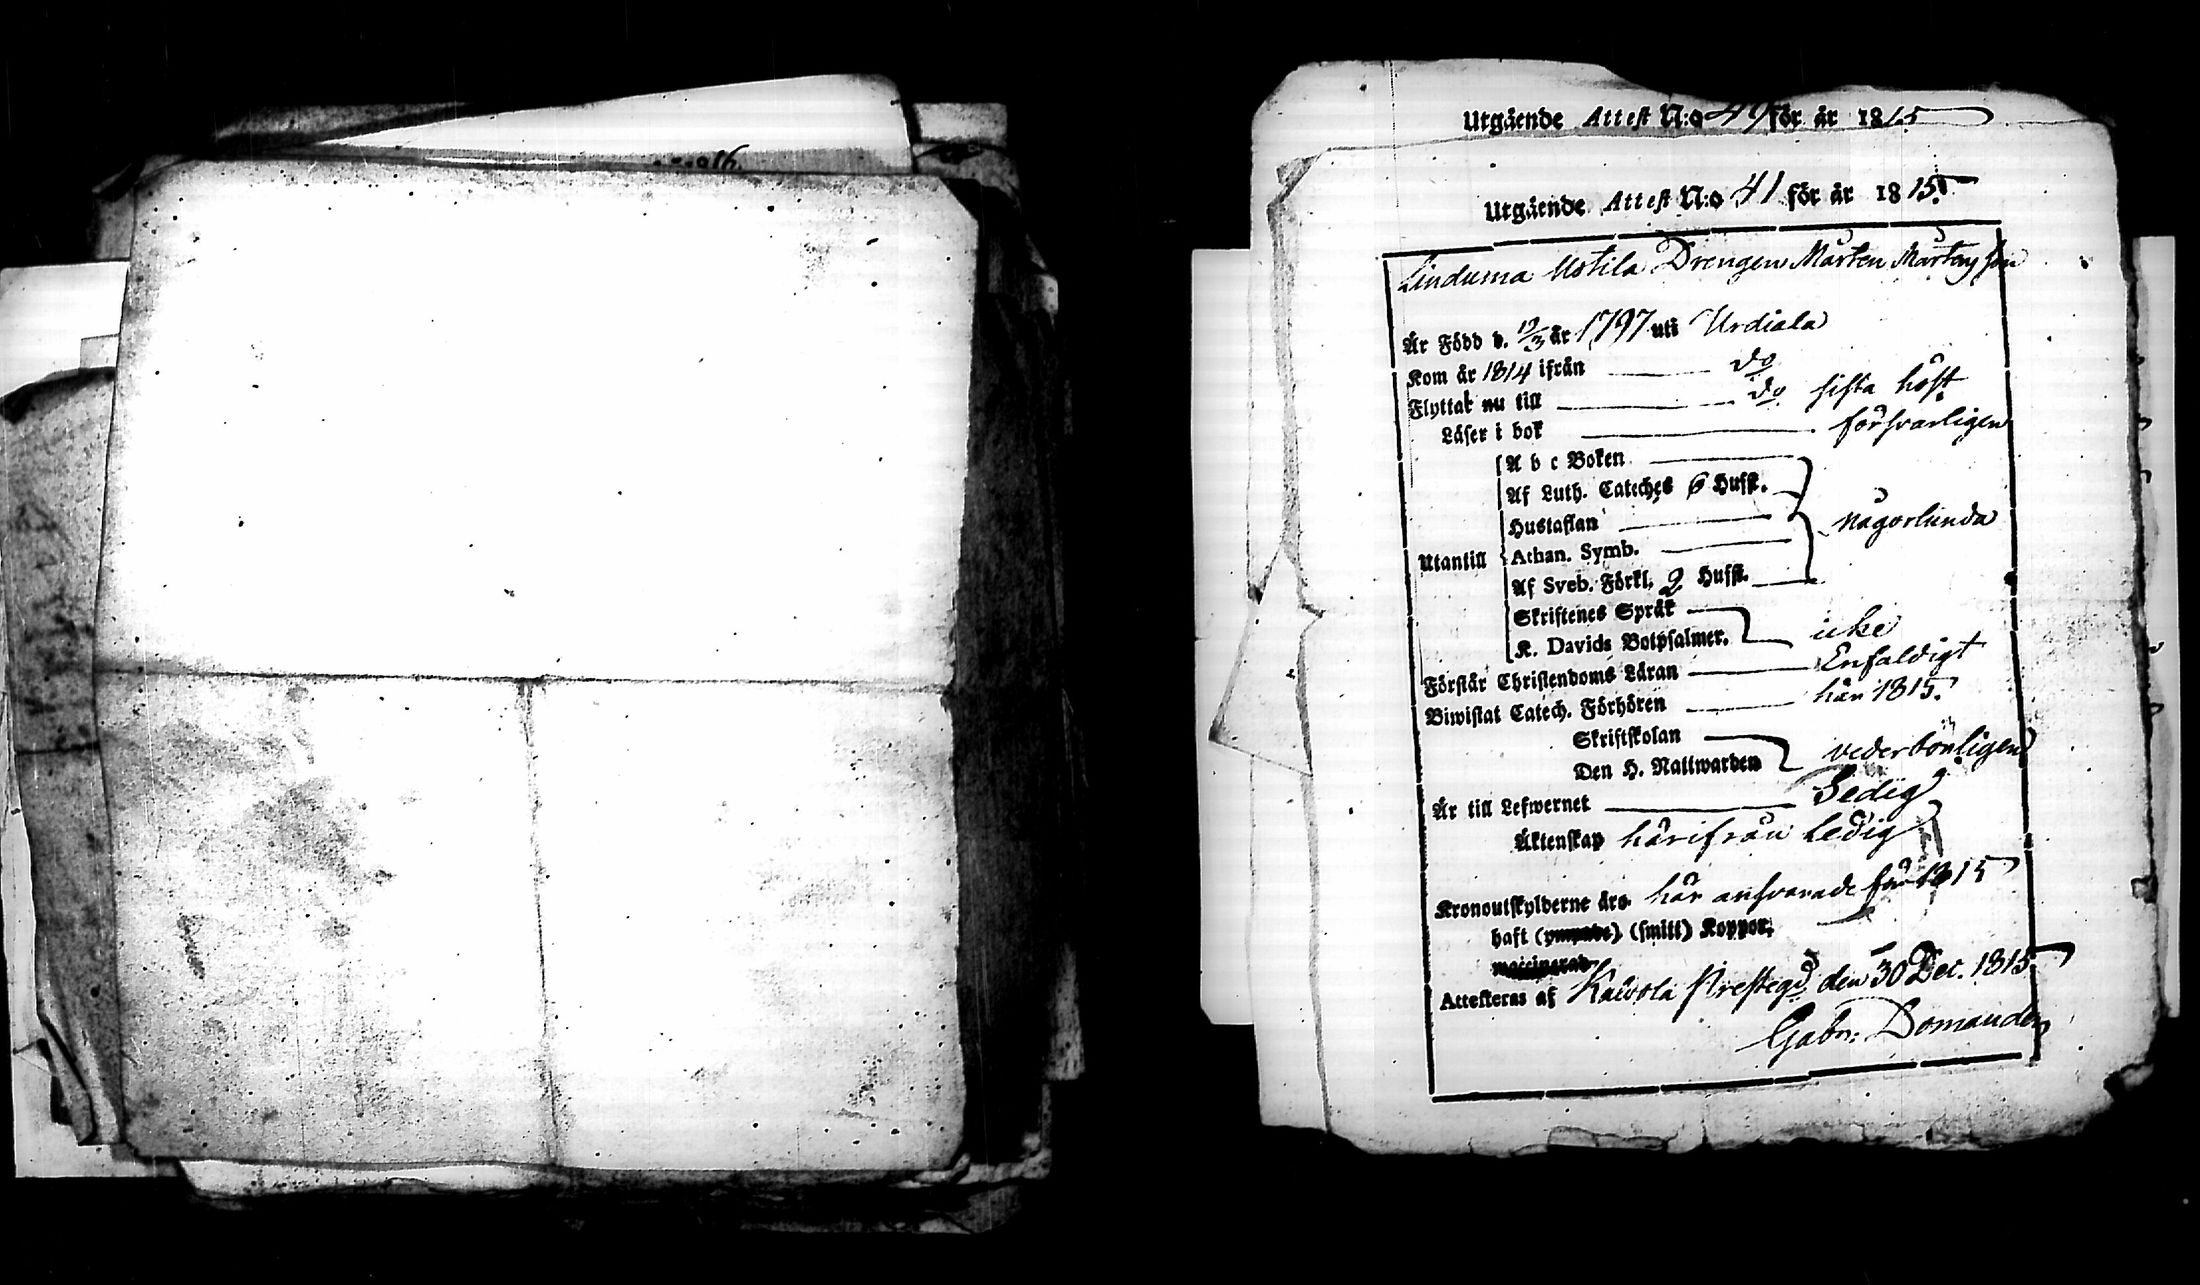 Utgående Attest N:o 49 för år 1815
Utgående Attest N:o 41 för år 1815.
Linduma Uotila Drengen Mårten Mårtensson
Är Född d. 19/3 år 1797 uti Urdiala
Kom år 1814 ifrån do
Flyttar nu till do sista höst
Läser i bok försvarligen
A b c Boken
Af Luth. Cateches 6 Hufst.
Hustaflan
någorlunda
Utantill Athan. Symb.
Af Sveb. Förkl. 2 Hufst.
Skriftenes Språk
K. Davids Botpsalmer. icke
Förstår Christendoms Läran Enfaldigt
Biwistat Catech. Förhören här 1815.
Skriftskolan
Den H. Nattwarden vederbörligen
Är till Lefwernet Sedig
Äktenskap härifrån ledig
Kronoutskylderne äro här ansvarade för 1815
haft (ympade) (smitt) Koppor.
vaccinerad
Attesteras af Kalvola Prestegd den 30 Dec. 1815
Gabr: Domander